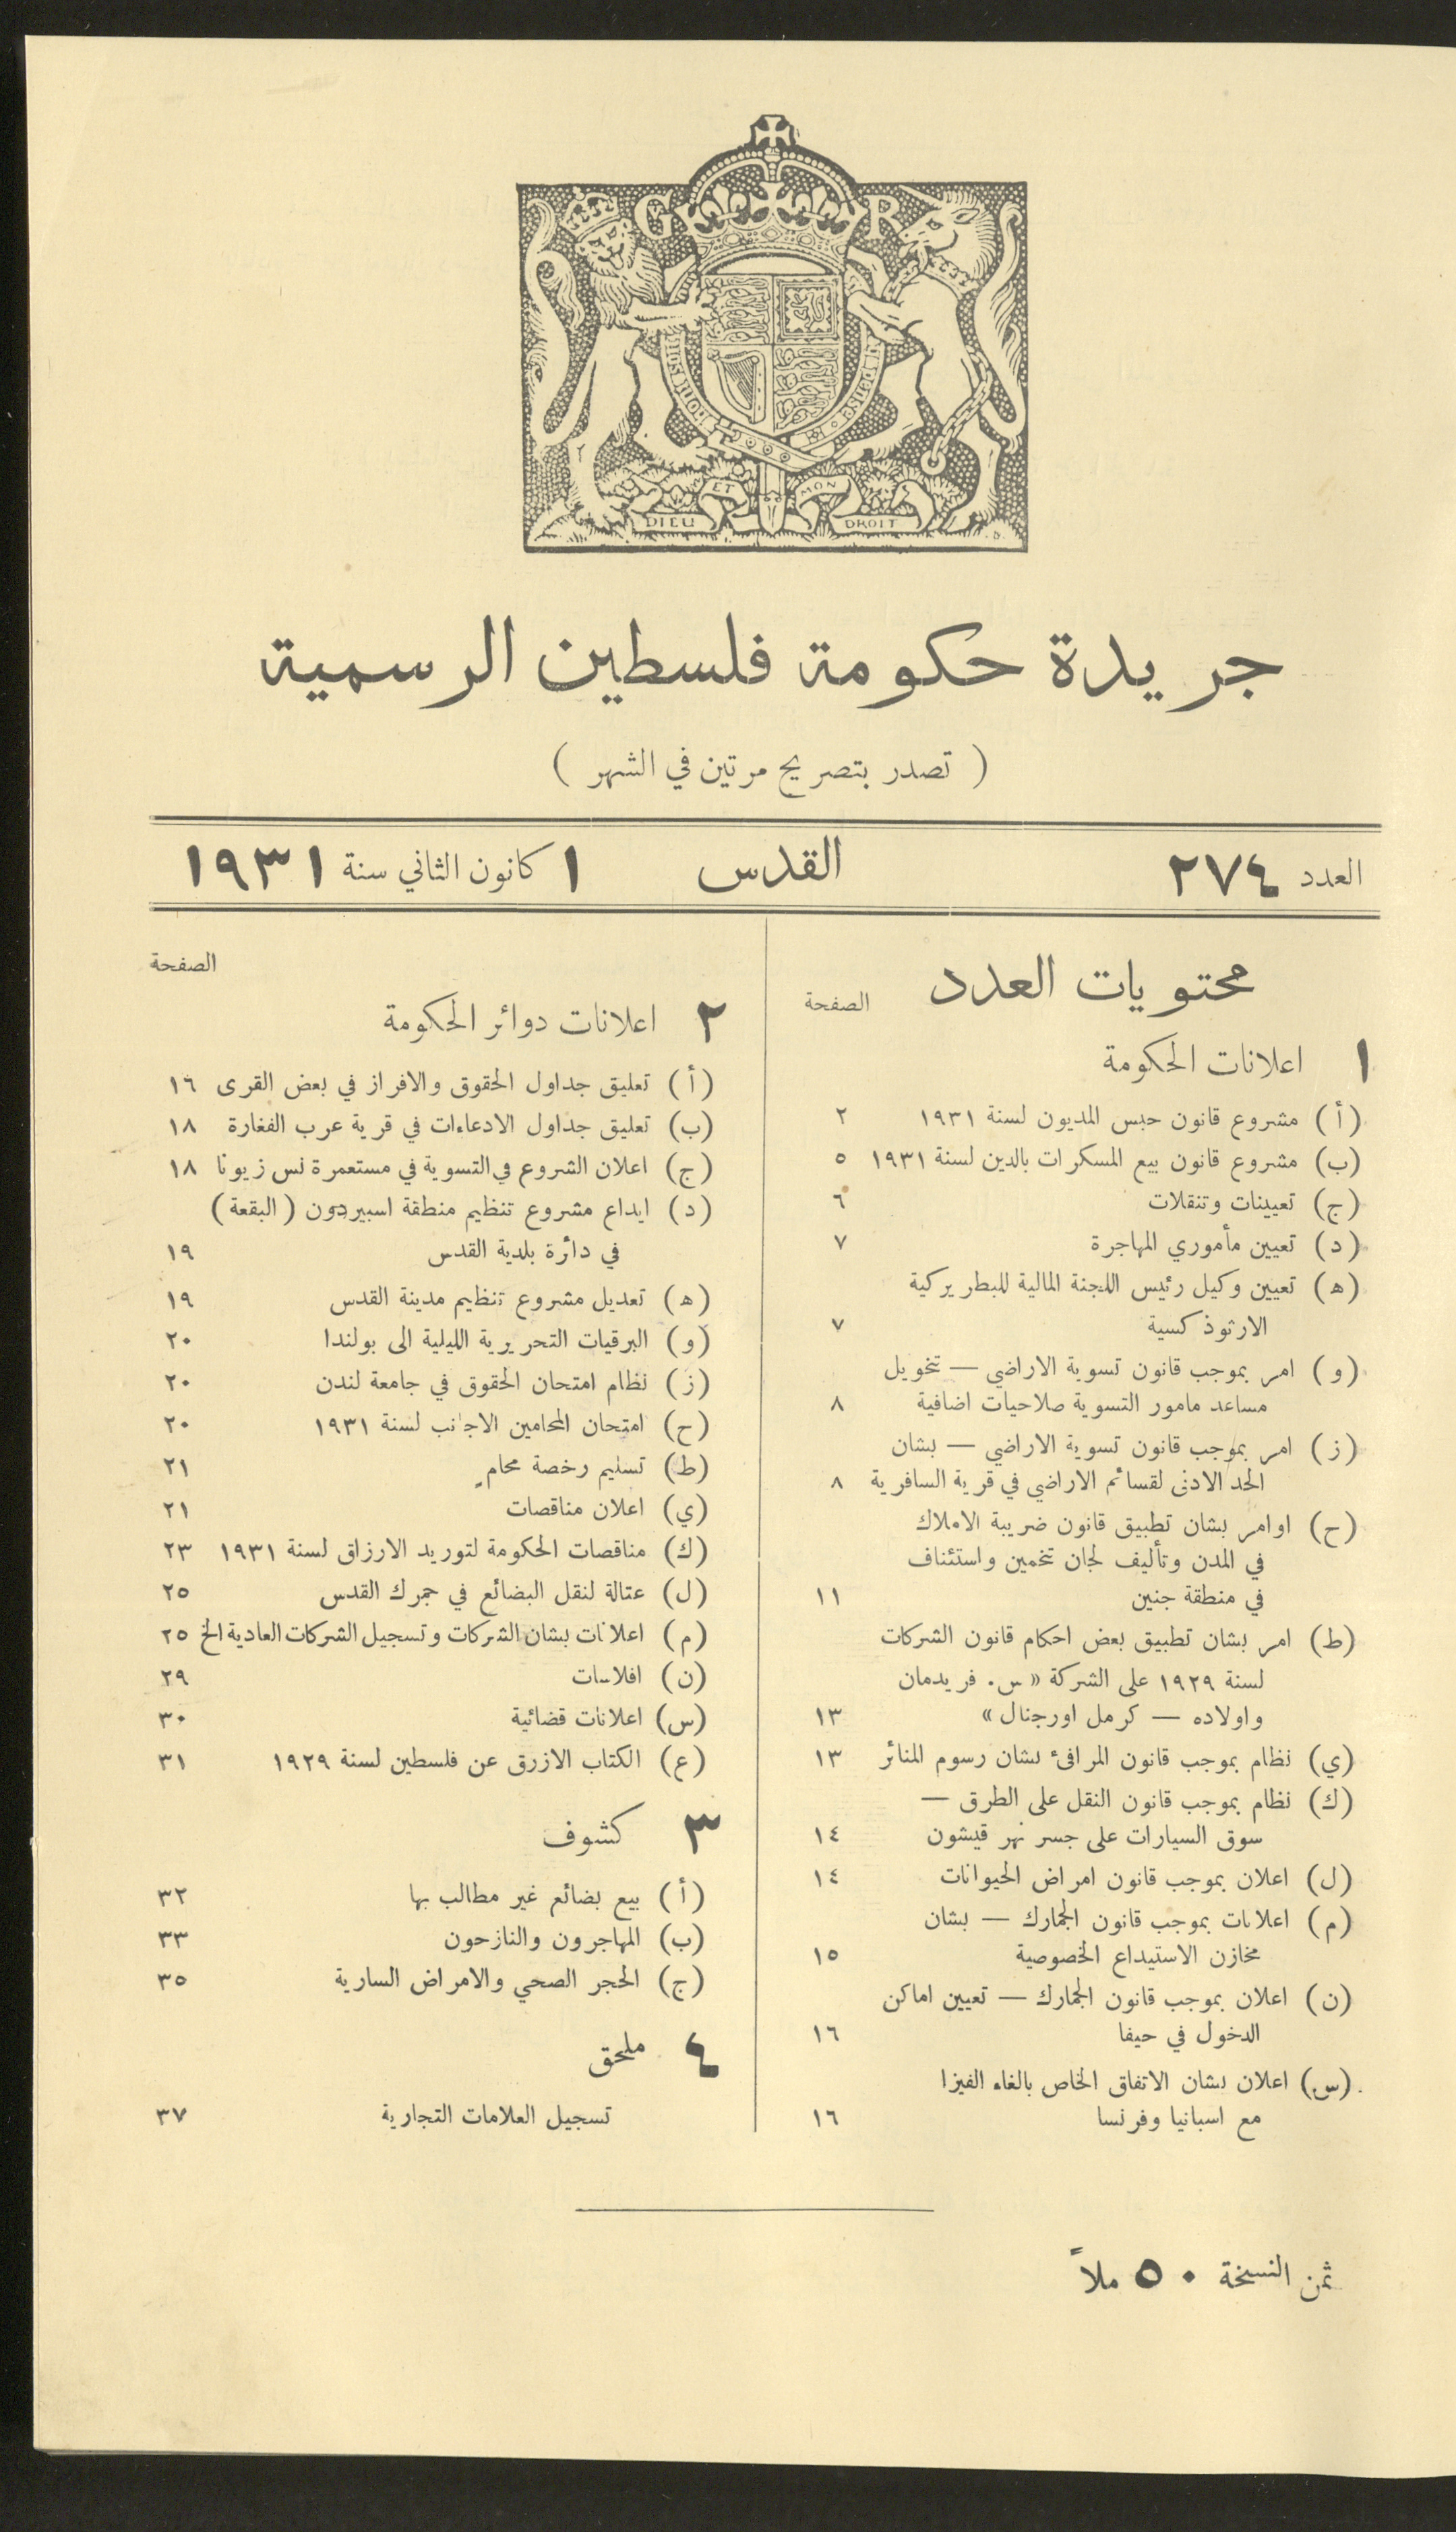 G R
HONI SOIT
DIEU ET MON DROIT
جريدة حكومة فلسطين الرسمية
( تصدر بتصريح مرتين في الشهر )
العدد ٢٧٤ القدس ١ كانون الثاني سنة ١٩٣١
محتويات العدد
الصفحة
١ اعلانات الحكومة
(أ) مشروع قانون حبس المديون لسنة ١٩٣١ ٢
(ب) مشروع قانون بيع المسكرات بالدين لسنة ١٩٣١ ٥
(ج) تعيينات وتنقلات ٦
(د) تعيين مأموري المهاجرة ٧
(ه) تعيين وكيل رئيس اللجنة المالية للبطريركية
الارثوذكسية ٧
(و) امر بموجب قانون تسوية الاراضي — تخويل
مساعد مامور التسوية صلاحيات اضافية ٨
(ز) امر بموجب قانون تسوية الاراضي — بشان
الحد الادنى لقسائم الاراضي في قرية السافرية ٨
(ح) اوامر بشان تطبيق قانون ضريبة الاملاك
في المدن وتأليف لجان تخمين واستئناف
في منطقة جنين ١١
(ط) امر بشان تطبيق بعض احكام قانون الشركات
لسنة ١٩٢٩ على الشركة « س. فريدمان
واولاده — كرمل اورجنال » ١٣
(ي) نظام بموجب قانون المرافئ بشان رسوم المنائر ١٣
(ك) نظام بموجب قانون النقل على الطرق —
سوق السيارات على جسر نهر قيشون ١٤
(ل) اعلان بموجب قانون امراض الحيوانات ١٤
(م) اعلانات بموجب قانون الجمارك — بشان
مخازن الاستيداع الخصوصية ١٥
(ن) اعلان بموجب قانون الجمارك — تعيين اماكن
الدخول في حيفا ١٦
(س) اعلان بشان الاتفاق الخاص بالغاء الفيزا
مع اسبانيا وفرنسا ١٦
الصفحة
٢ اعلانات دوائر الحكومة
(أ) تعليق جداول الحقوق والافراز في بعض القرى ١٦
(ب) تعليق جداول الادعاءات في قرية عرب الفغارة ١٨
(ج) اعلان الشروع في التسوية في مستعمرة نس زيونا ١٨
(د) ايداع مشروع تنظيم منطقة اسبيردون (البقعة)
في دائرة بلدية القدس ١٩
(ه) تعديل مشروع تنظيم مدينة القدس ١٩
(و) البرقيات التحريرية الليلية الى بولندا ٢٠
(ز) نظام امتحان الحقوق في جامعة لندن ٢٠
(ح) امتحان المحامين الاجانب لسنة ١٩٣١ ٢٠
(ط) تسليم رخصة محامٍ ٢١
(ي) اعلان مناقصات ٢١
(ك) مناقصات الحكومة لتوريد الارزاق لسنة ١٩٣١ ٢٣
(ل) عتالة لنقل البضائع في جمرك القدس ٢٥
(م) اعلانات بشان الشركات وتسجيل الشركات العادية الخ ٢٥
(ن) افلاسات ٢٩
(س) اعلانات قضائية ٣٠
(ع) الكتاب الازرق عن فلسطين لسنة ١٩٢٩ ٣١
٣ كشوف
(أ) بيع بضائع غير مطالب بها ٣٢
(ب) المهاجرون والنازحون ٣٣
(ج) الحجر الصحي والامراض السارية ٣٥
٤ ملحق
تسجيل العلامات التجارية ٣٧
ثمن النسخة ٥٠ ملاً